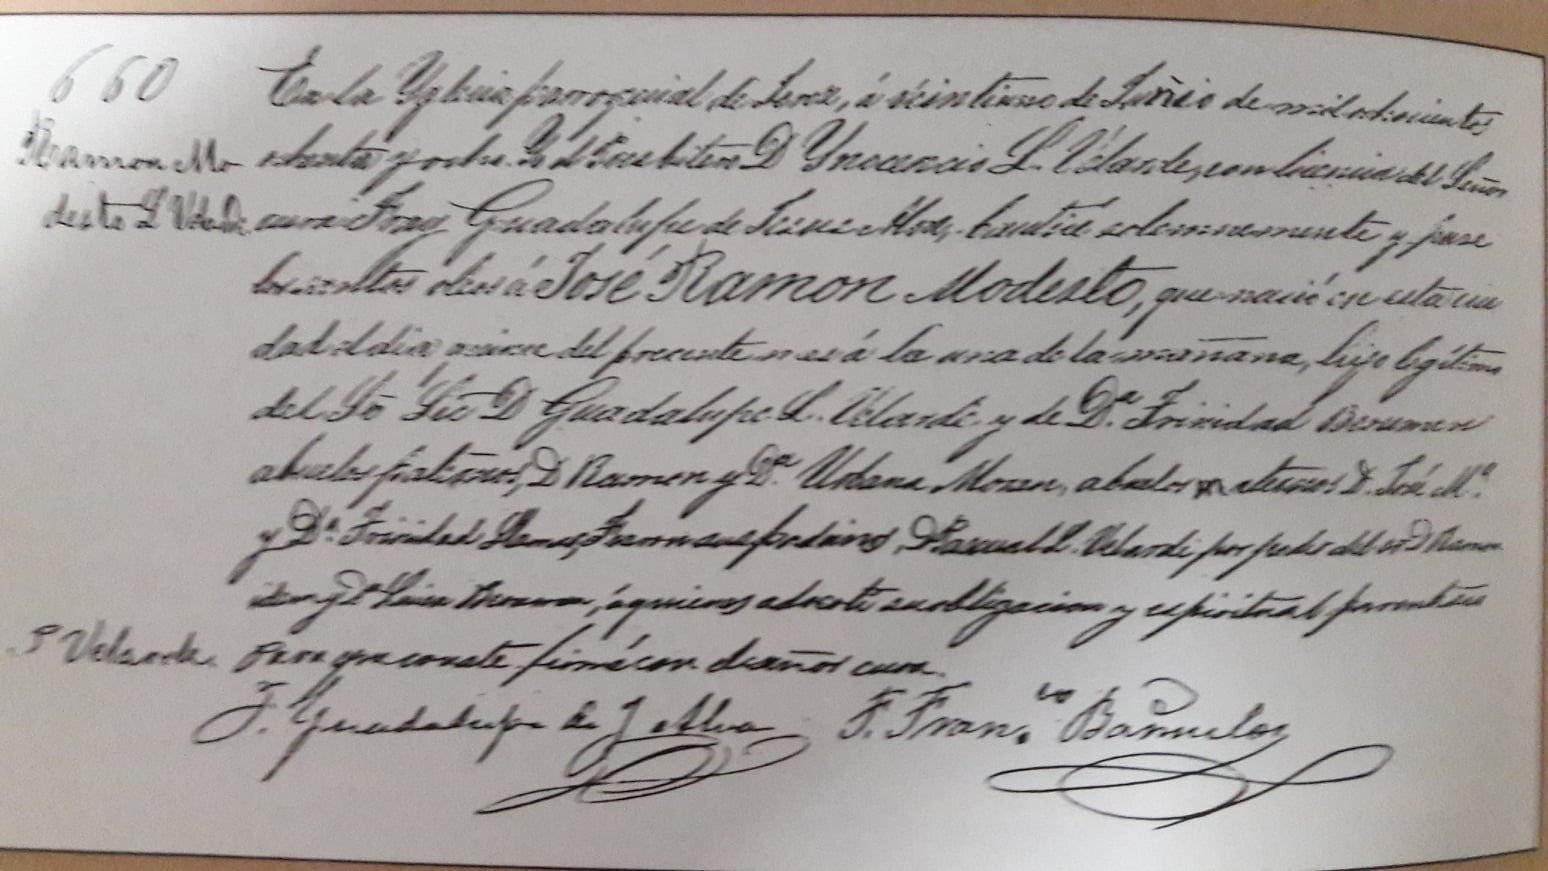 660
Ramon Mo
desto L Velarde
En la Yglesia parroquial de Jerez, á veintiuno de Junio de mil ochocientos
ochenta y ocho. Yo el Presbitero D Ynocencio L. Velarde, con licencia del Señor
cura Fray Guadalupe de Jesus Alva, bauticé solemnemente y puse
los santos oleos á José Ramon Modesto, que nació en esta ciu
dad el dia quince del presente mes á la una de la mañana, hijo legítimo
del Sr Lic D Guadalupe L. Velarde y de Da. Trinidad Berumen
abuelos paternos, D Ramon y Da. Urbana Moran, abuelos maternos D. José Ma.
y Da. Trinidad Llamas, Fueron sus padrinos, D Pascual L. Velarde por poder del Sr D Ramon
y Da Luisa Berumen, á quienes advertí su obligacion y espiritual parentesco
Para que conste firmé con el señor cura.
P Velarde.
F. Guadalupe de J. Alva
F. Franco. Bañuelos